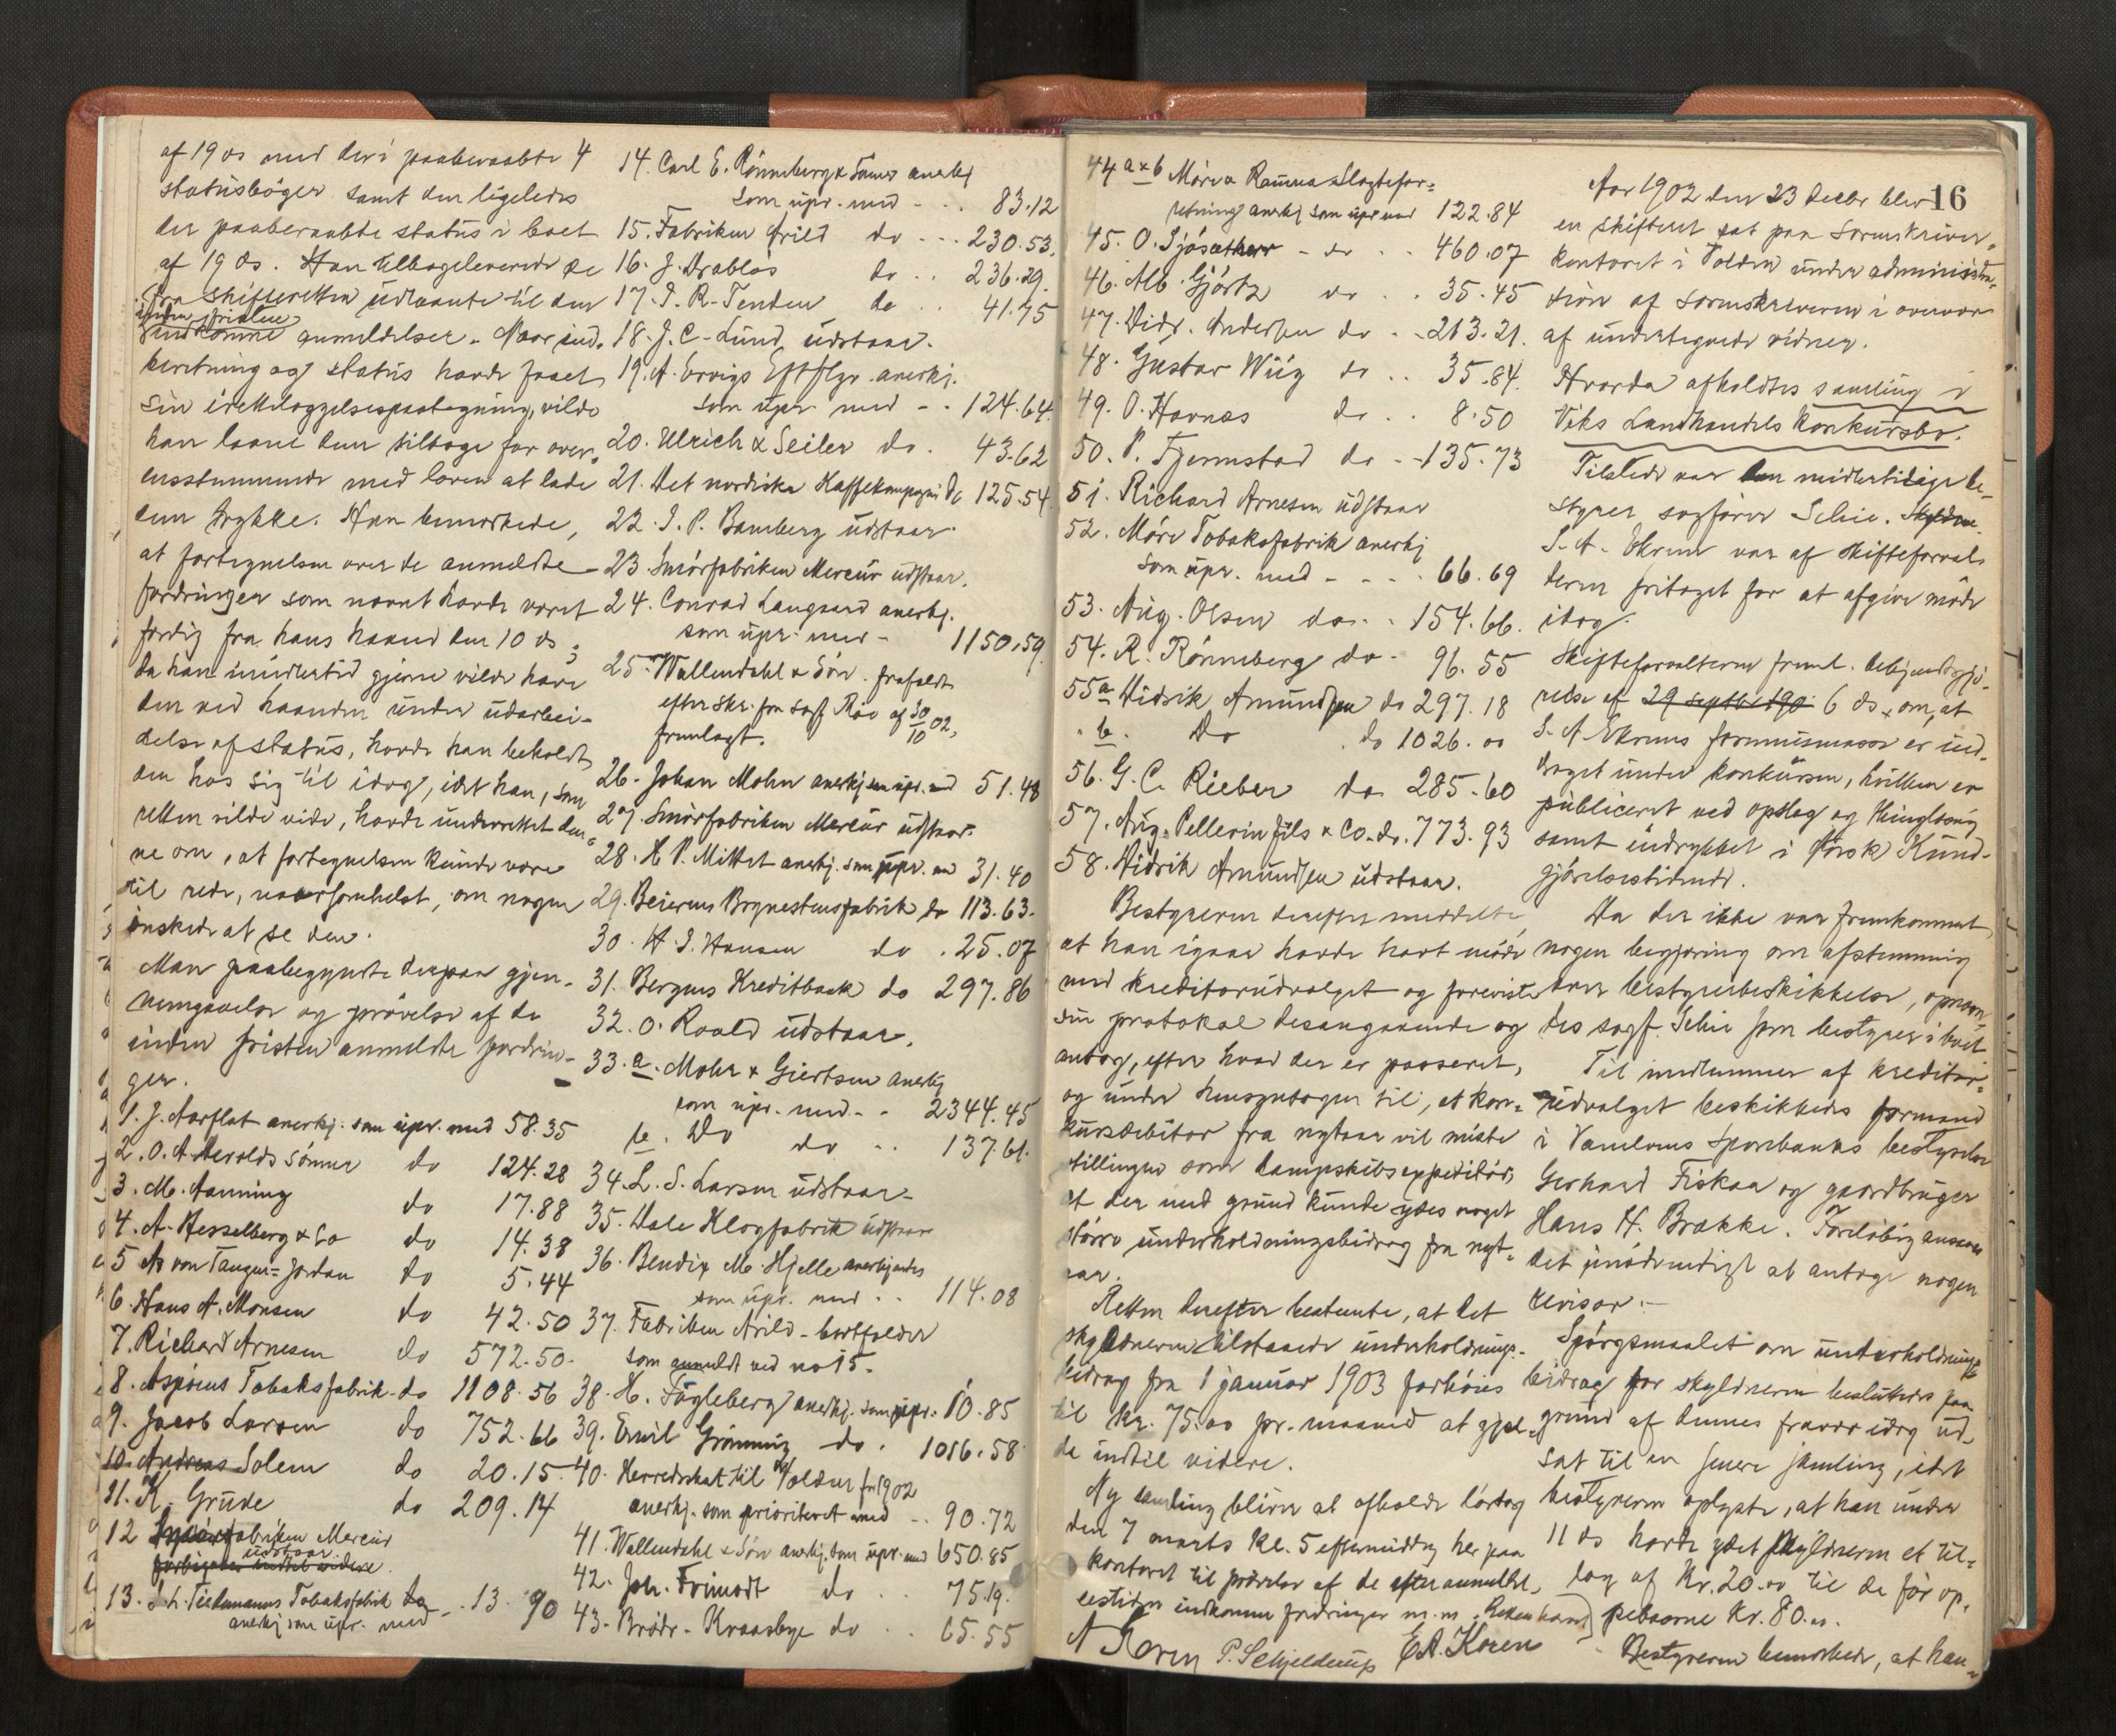 af 19 ds med deri paaberaabte 4
statusbøger samt den ligeledes
der paaberaabte status i boet
af 19 ds. Han tilbageleverede de
fra skifteretten udlaante til den
inden fristen
indkomne anmeldelser. Naar ind-
beretning og status havde faaet
sin irettelæggelsespaategning, vilde
han laane dem tilbage for over-
ensstemmende med loven at lade
dem trykke. Han bemærkede,
at fortegnelsen over de anmeldte
fordringer som nævnt havde været
færdig fra hans haand den 10 ds;
da han imidlertid gjerne vilde have
den ved haanden under udarbei-
delse af status, havde han beholdt
den hos sig til idag, idet han, som
retten vilde vide, havde underrettet den-
ne om, at fortegnelsen kunde være
til rede, naarsomhelst, om nogen
ønskede at se den.
Man paabegyndte derpaa gjen-
nemgaaelse og prøvelse af de
inden fristen anmeldte fordrin-
ger.
1. J. Aarflot anerkj. som upr. med 58.35
2. O. A. Devolds Sønner do 124.28
3. M. Aanning do 17.88
4. A. Hesselberg & Co do 14.38
5 As von Tangen-Jordan do 5.44
6. Hans A. Monsen do 42.50
7. Richard Arnesen do 572.50.
8. Asperus Tobaksfabrik do 1108.56
9. Jacob Larsen do 752.66
10. Andreas Solem do 20.15
11. K. Grude do 209.14
12 Smørfabriken Mercur
udstaar
forbigaaes indtil videre.
13. J. L. Tiedemanns Tobaksfabrik do 13.90
anerkj som upr. med
14. Carl E. Rønneberg & Sønner anerkj
som upr. med - - . 83.12
15. Fabriken Arild do - - . 230.53.
16. J. Drabløs do . . 236.29.
17. I. R. Tenden do . . 41.75
18. J. C. Lund, udstaar.
19. A. Ervigs Eftflgr. anerkj.
som upr. med - . 124.64.
20. Ulrich & Seiler do . 43.62
21. Det nordiske Kaffekompagni do 125.54.
22. I. P. Bamberg udstaar.
23. Smørfabriken Mercur udstaar.
24. Conrad Langaard anerkj.
som upr. med - 1150.59.
25. Wallendahl & Søn. frafaldt
efter skr. fra sagf. Roo af 30/10 02,
fremlagt.
26. Johan Mohn anerkj som upr. med 51.48
27. Smørfabriken Mercur udstaar.
28. H P. Mittet anerkj. som upr. med 31.40
29. Beierens Brynestensfabrik do 113.63.
30. H. I. Hansen do . 25.07
31. Bergens Kreditbank do 297.86
32. O. Roald udstaar.
33. a. Mohr & Giertsen anerkj
som upr. med - - 2344.45
b. Do do . . 137.61.
34. L. S. Larsen udstaar.
35. Dale Klogfabrik udstaar
36. Bendix M. Hjelle anerkjendes
som upr. med . . 114.08
37. Fabriken Arild - bortfalder
som anmeldt ved no 15.
38. H. Fugleberg anerkj. som upr. 10.85
39. Emil Grønning do . 1016.58.
40. Herredsskat til Volden for 1902
anerkj. som prioriteret med - . 90.72
41. Wallendahl & Søn anerkj. som upr. med 650.85
42. Joh. Frimodt do . . 75.19.
43. Brødr. Kvaasbye do . . 65.55
44 a & b Møre & Romsdal Slagtefor-
retning anerkj som upr med 122.84
45. O. Sjøsæther - do . . 460.07
46. Alb. Gjørtz do . . 35.45
47. Didr. Andersen do . - 213.21.
48. Gustav Wiig do . . 35.84.
49. O. Havnæs do . . 8.50
50. P. Fjermstad do - - 135.73
51. Richard Arnesen udstaar
52. Møre Tobaksfabrik anerkj
som upr. med - - - . 66.69
53. Aug. Olsen do . . 154.66.
54. R. Rønneberg do - 96.55
55 a Didrik Amundsen do 297.18
" b. Do . do 1026.00
56. G. C. Rieber do 285.60
57. Aug. Pellerin fils & Co. do. 773.93
58. Didrik Amundsen udstaar.
Bestyreren derefter meddelte,
at han igaar havde havt møde
med kreditorudvalget og foreviste
sin protokol desangaaende og
antog, efter hvad der er passeret,
og under hensyntagen til, at kon-
kursdebitor fra nytaar vil miste
stillingen som dampskibsexpeditør,
at der med grund kunde ydes noget
større underholdningsbidrag fra nyt-
aar.
Retten derefter bestemte, at det
skyldneren tilstaaede underholdnings-
bidrag fra 1 januar 1903 forhøies
til kr. 75.00 pr. maaned at gjæl-
de indtil videre.
Ny samling bliver at afholde lørdag
den 7 marts kl. 5 eftermiddag her paa
kontoret til prøvelse af de efter anmeldel-
sestiden indkomne fordringer m.m. Retten hævet
A Koren P. Schjelderup E A. Koren
16
Aar 1902 den 23 decbr blev
en skifteret sat paa Sorenskriver-
kontoret i Volden under administra-
tion af sorenskriveren i overvær
af undertegnede vidner.
Hvorda afholdtes samling i
Viks Landhandels konkursbo.
Tilstede var den midlertidige be-
styrer sagfører Schie. Skyldne
S. A. Ekrem var af skifteforval-
teren fritaget for at afgive møde
idag.
Skifteforvalteren freml. bekjendtgjø-
relse af 29 septbr 190 6 ds, om, at
S. A. Ekrems formuesmasse er ind-
draget under konkursen, hvilken er
publiceret ved opslag og thinglæsning
samt indrykket i Norsk Kund-
gjørelsestidende.
Da der ikke var fremkommet
nogen begjæring om afstemning
over bestyrerbeskikkelse, opnævn-
tes sagf. Schie som bestyrer i boet.
Til medlemmer af kreditor-
udvalget beskikkedes formand
i Vanelvens Sparebanks bestyrelse
Gerhard Fiskaa og gaardbruger
Hans H. Brække. Foreløbig ansaaes
det unødvendigt at antage nogen
revisor.-
Spørgsmaalet om underholdnings-
bidrag for skyldneren besluttedes paa
grund af dennes fravær idag ud-
sat til en senere samling, idet
bestyreren oplyste, at han under
11 ds havde ydet skyldneren et til-
læg af kr. 20.00 til de før op-
pebaarne kr. 80.00.
Bestyreren bemærkede, at han